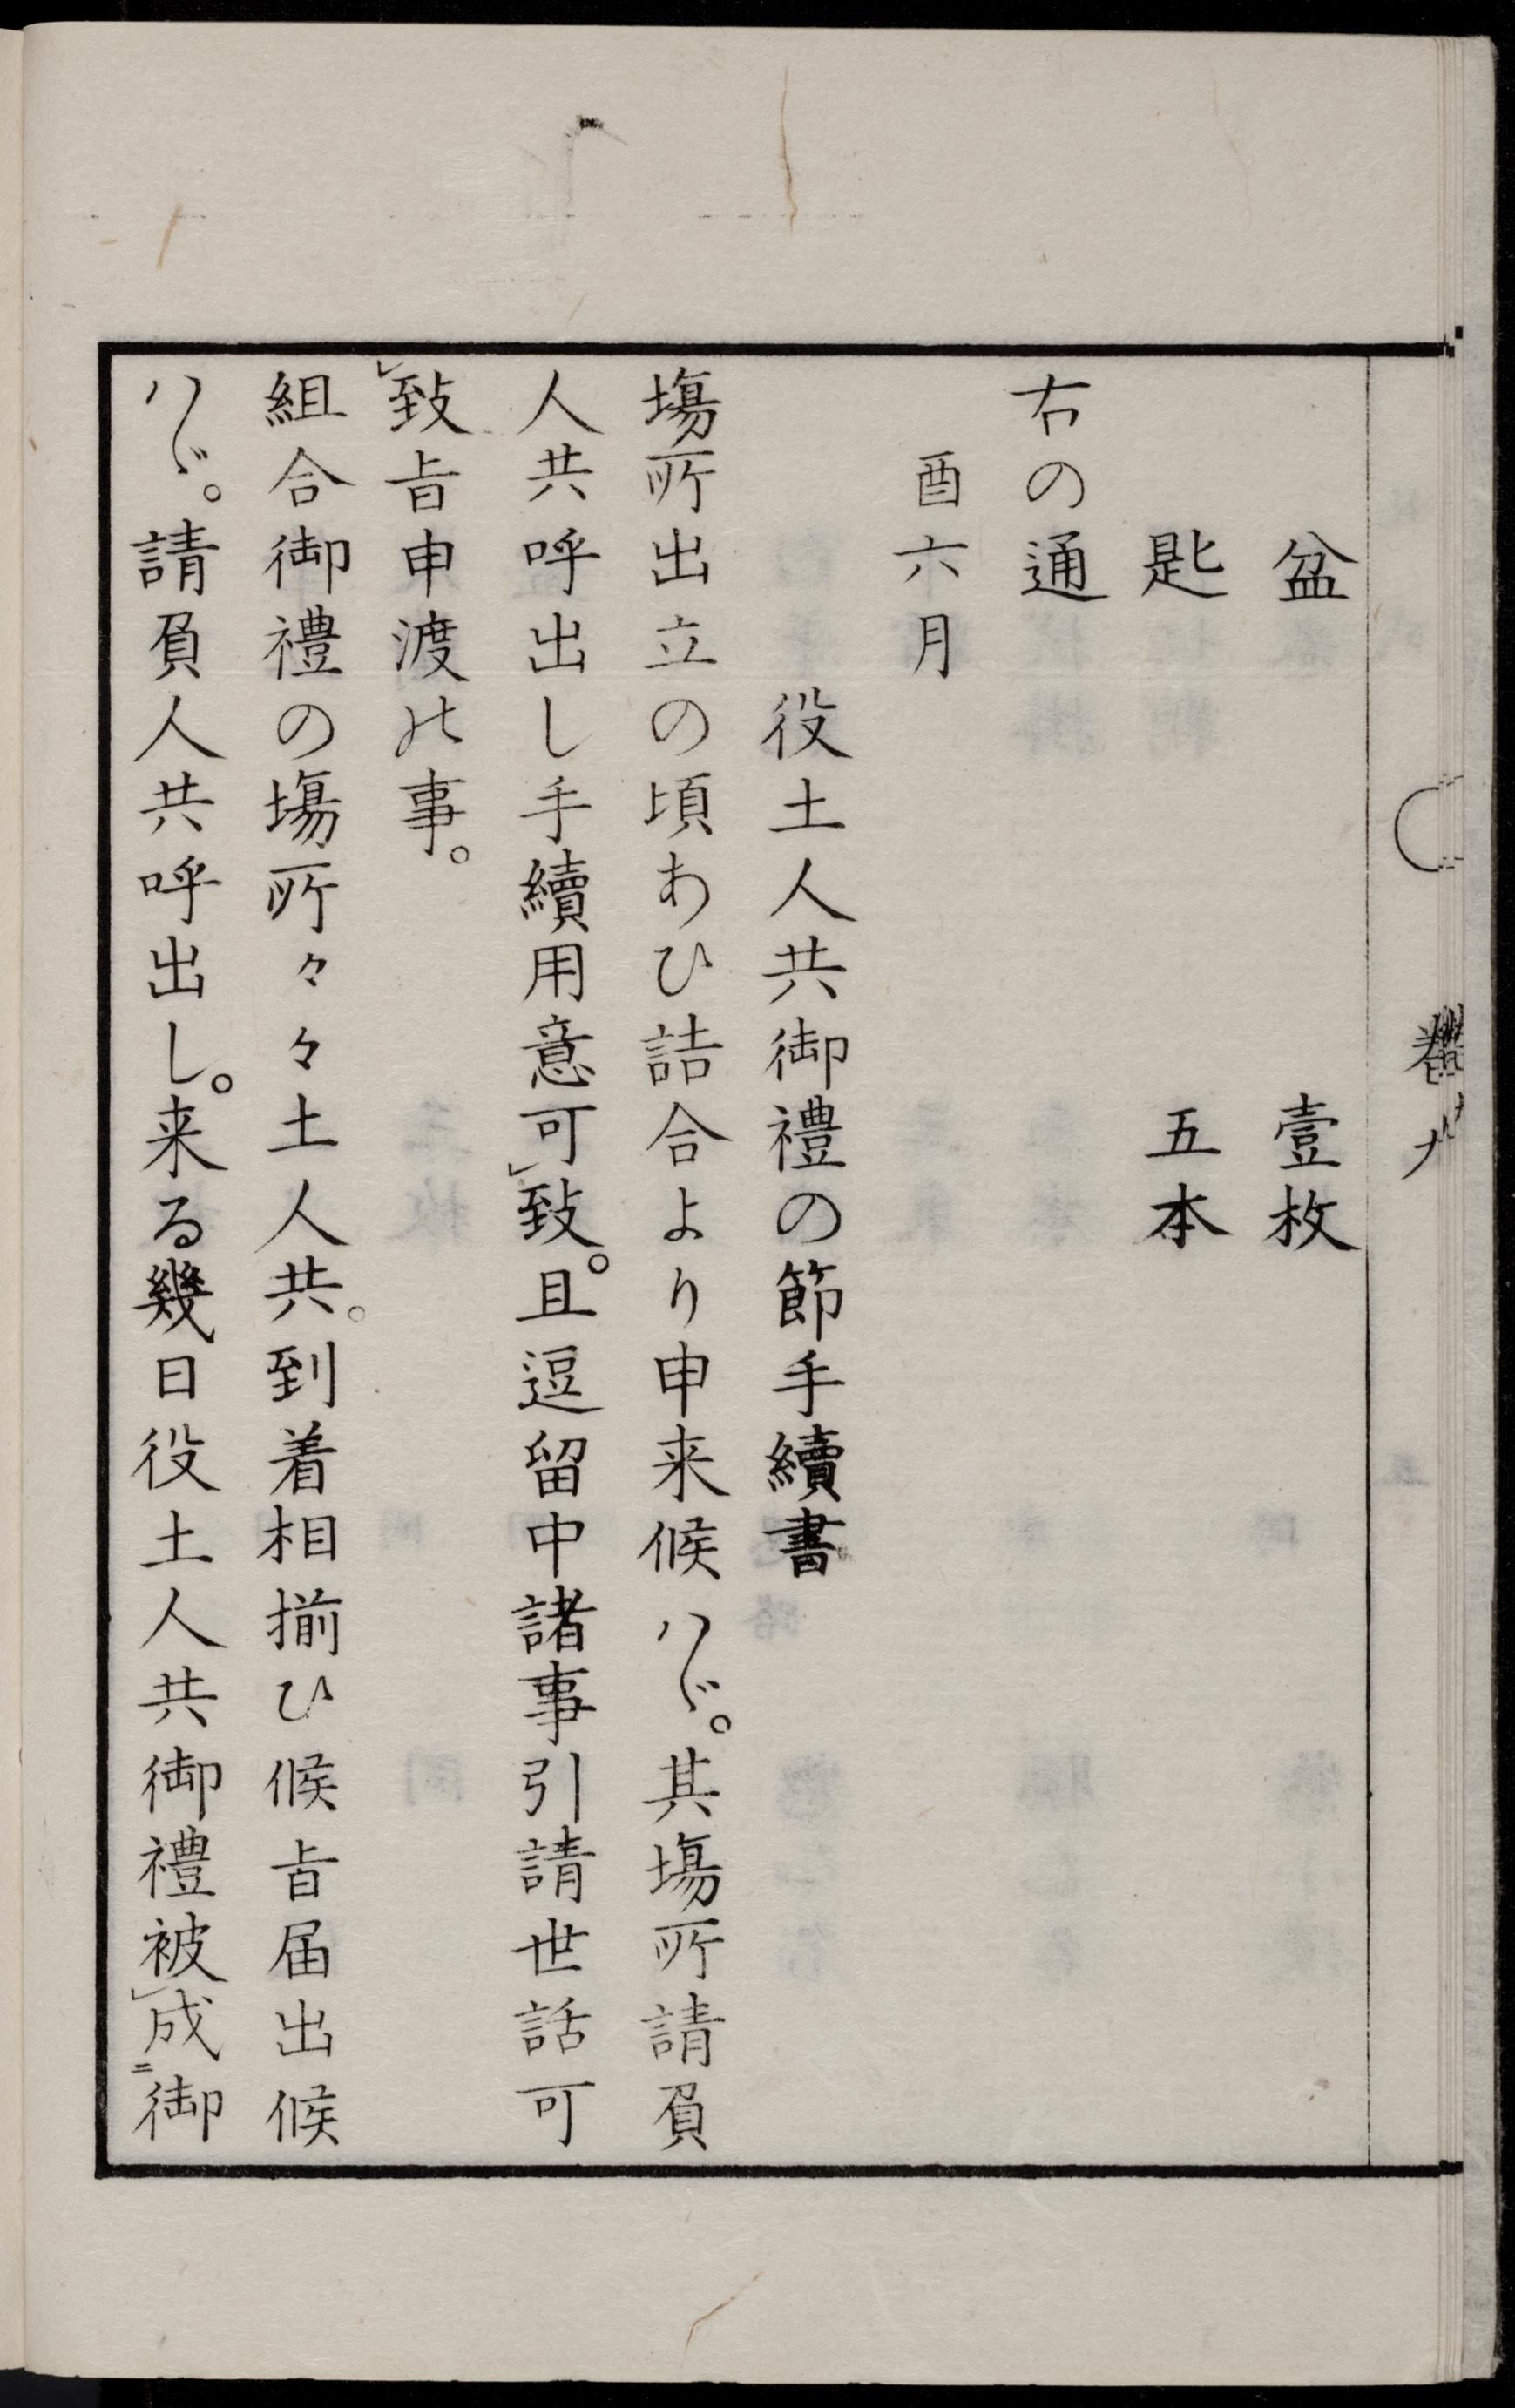 盆　壹枚
匙　五本
右の通
酉六月
役土人共御禮の節手續書
塲所出立の頃あひ詰合より申来候ハヾ。其塲所請負
人共呼出し手續用意可㆑致。且逗留中諸事引請世話可
㆑致旨申渡の事。
組合御禮の塲所々々土人共。到着相揃ひ候旨届出候
ハヾ。請負人共呼出し。来る幾日役土人共御禮被㆑成㆓御